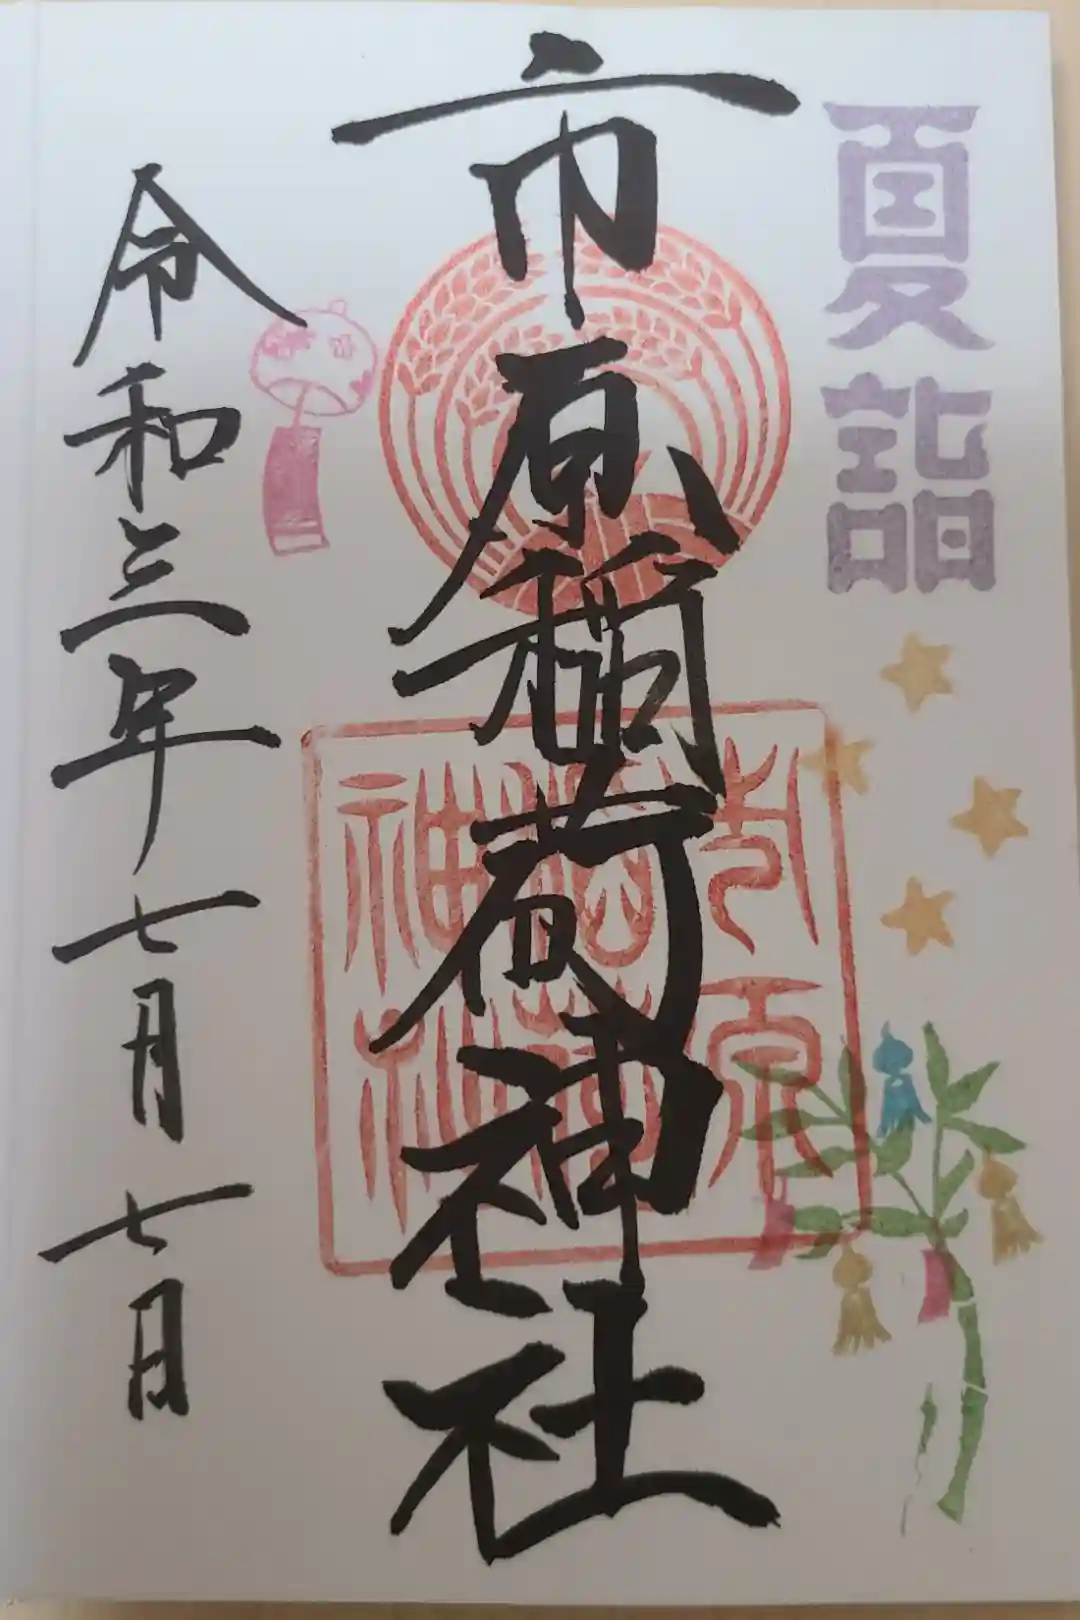 夏詣
市原稲荷神社
市原
稲荷
神社
令和三年七月七日